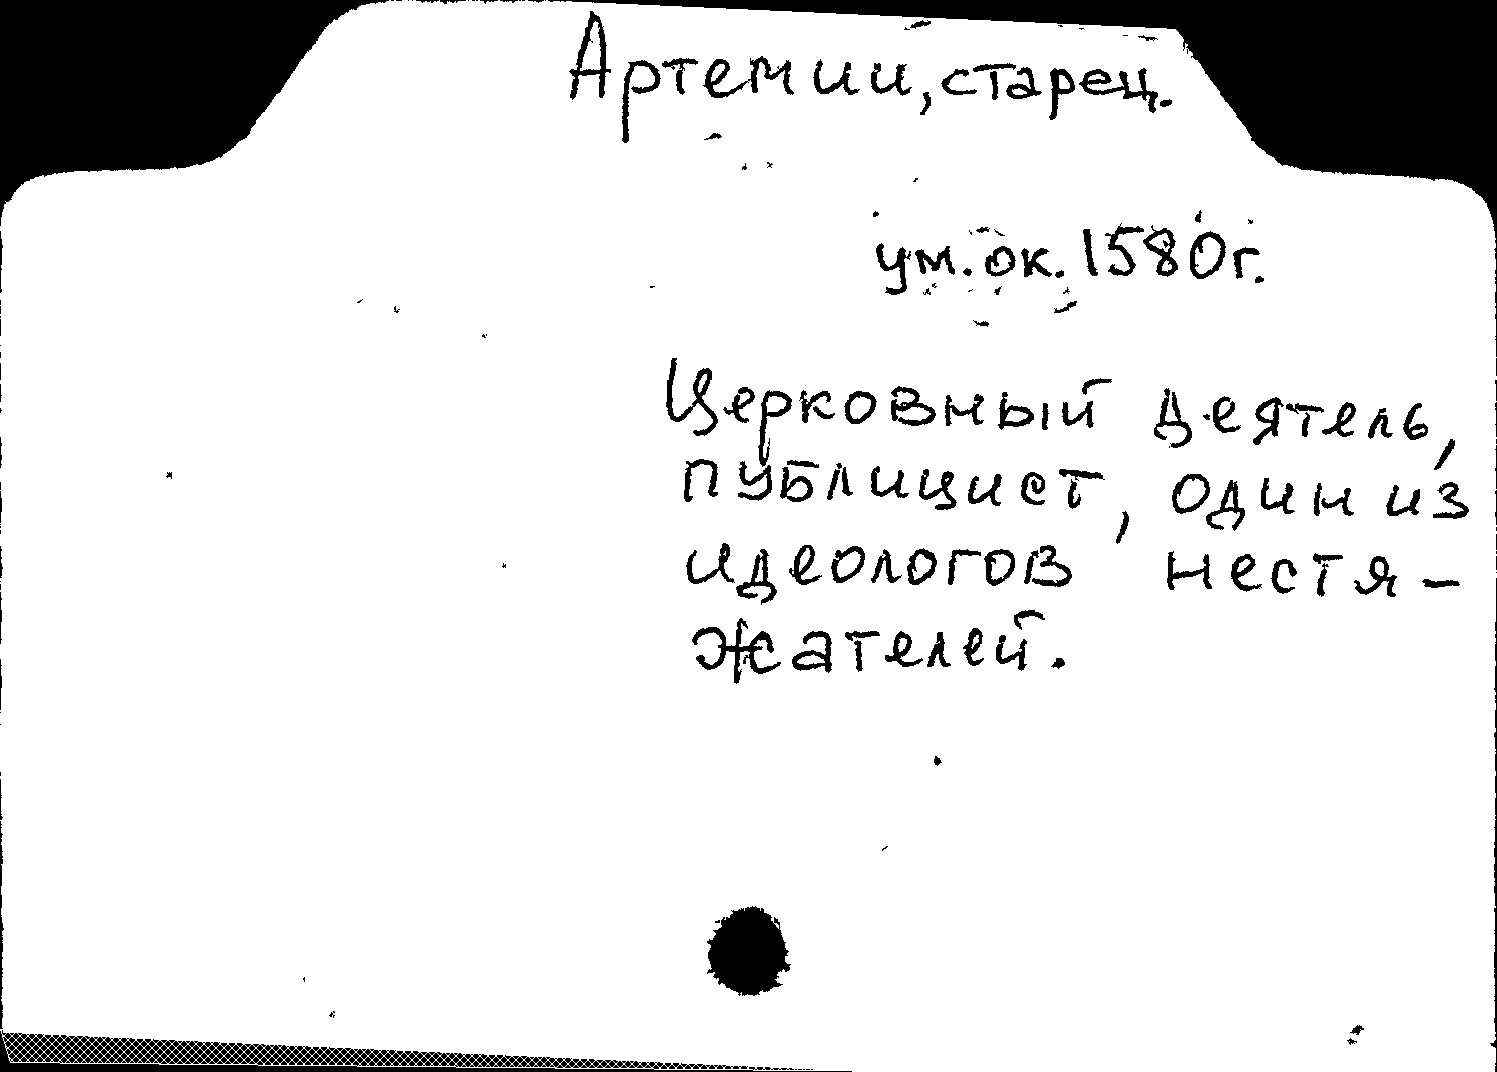 Артемии, старец.
ум. ок. 1580 г.
Церковный деятель,
публицист, один из
идеологов нестя-
жателей.